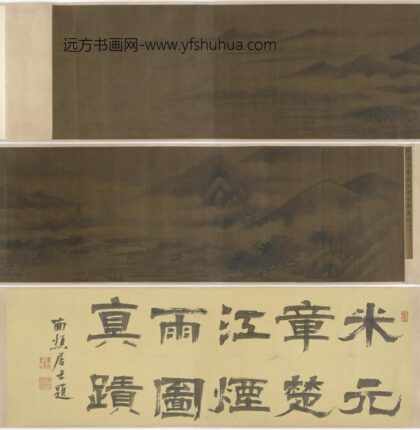 远方书画网-www.yfshuhua.com
米元
章楚
江煙
雨圖
真蹟
南居士題